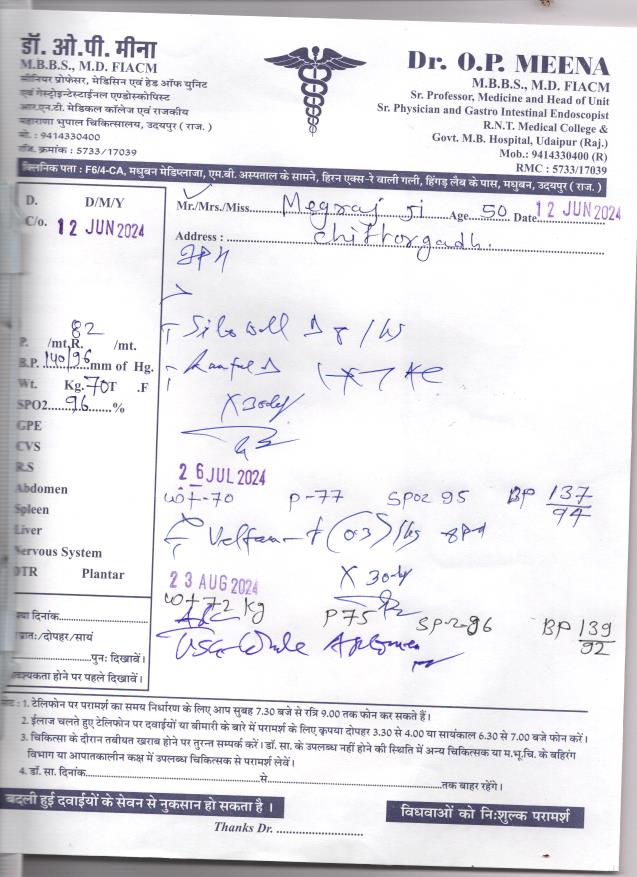 डॉ. ओ.पी. मीना
M.B.B.S., M.D. FIACM
सीनियर प्रोफेसर, मेडिसिन एवं हेड ऑफ युनिट
एवं गेस्ट्रोइन्टेस्टाईनल एण्डोस्कोपिस्ट
आर.एन.टी. मेडिकल कॉलेज एवं राजकीय
महाराणा भुपाल चिकित्सालय, उदयपुर ( राज. )
मो. : 9414330400
रजि. क्रमांक : 5733/17039
Dr. O.P. MEENA
M.B.B.S., M.D. FIACM
Sr. Professor, Medicine and Head of Unit
Sr. Physician and Gastro Intestinal Endoscopist
R.N.T. Medical College &
Govt. M.B. Hospital, Udaipur (Raj.)
Mob.: 9414330400 (R)
RMC : 5733/17039
क्लिनिक पता : F6/4-CA, मधुबन मेडिप्लाजा, एम.बी. अस्पताल के सामने, हिरन एक्स-रे वाली गली, हिंगड़ लैब के पास, मधुबन, उदयपुर ( राज. )
D. D/M/Y
C/o. 12 JUN 2024
Mr./Mrs./Miss Megraj Ji Age 50 Date 12 JUN 2024
Address : Chittorgadh.
P. 82 /mt,R. /mt.
B.P. 140/96 mm of Hg.
Wt. Kg. 70 T .F
SPO2 96 %
GPE
CVS
R.S
Abdomen
Spleen
Liver
Nervous System
DTR Plantar
X 30day
26 JUL 2024
wt-70 P-77 SPO2 95 BP 137/94
(0.3)
X 30day
23 AUG 2024
wt 72 kg P 75 SP-2-96 BP 139/92
USG Whole Abdomen
दिनांक
प्रातः/दोपहर/सायं
पुनः दिखावें।
आवश्यकता होने पर पहले दिखावें।
नोट : 1. टेलिफोन पर परामर्श का समय निर्धारण के लिए आप सुबह 7.30 बजे से रात्रि 9.00 तक फोन कर सकते हैं।
2. ईलाज चलते हुए टेलिफोन पर दवाईयों या बीमारी के बारे में परामर्श के लिए कृपया दोपहर 3.30 से 4.00 या सायंकाल 6.30 से 7.00 बजे फोन करें।
3. चिकित्सा के दौरान तबीयत खराब होने पर तुरन्त सम्पर्क करें। डॉ. सा. के उपलब्ध नहीं होने की स्थिति में अन्य चिकित्सक या म.भू.चि. के बहिरंग
विभाग या आपातकालीन कक्ष में उपलब्ध चिकित्सक से परामर्श लेवें।
4. डॉ. सा. दिनांक से तक बाहर रहेंगे।
बदली हुई दवाईयों के सेवन से नुकसान हो सकता है।
विधवाओं को निःशुल्क परामर्श
Thanks Dr.